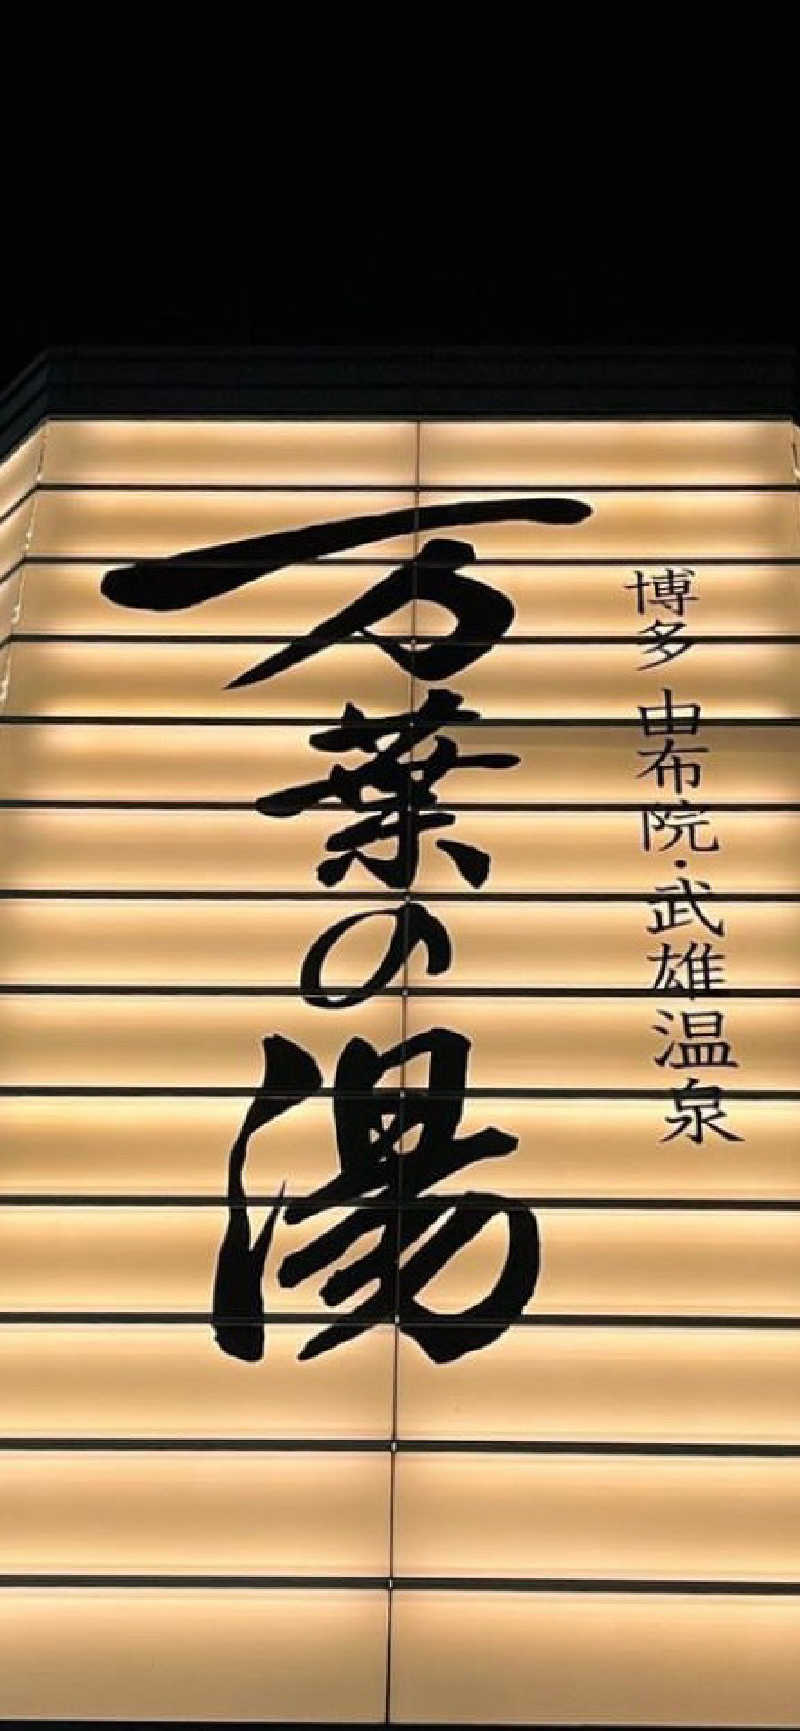 博多 由布院・武雄温泉
万葉の湯